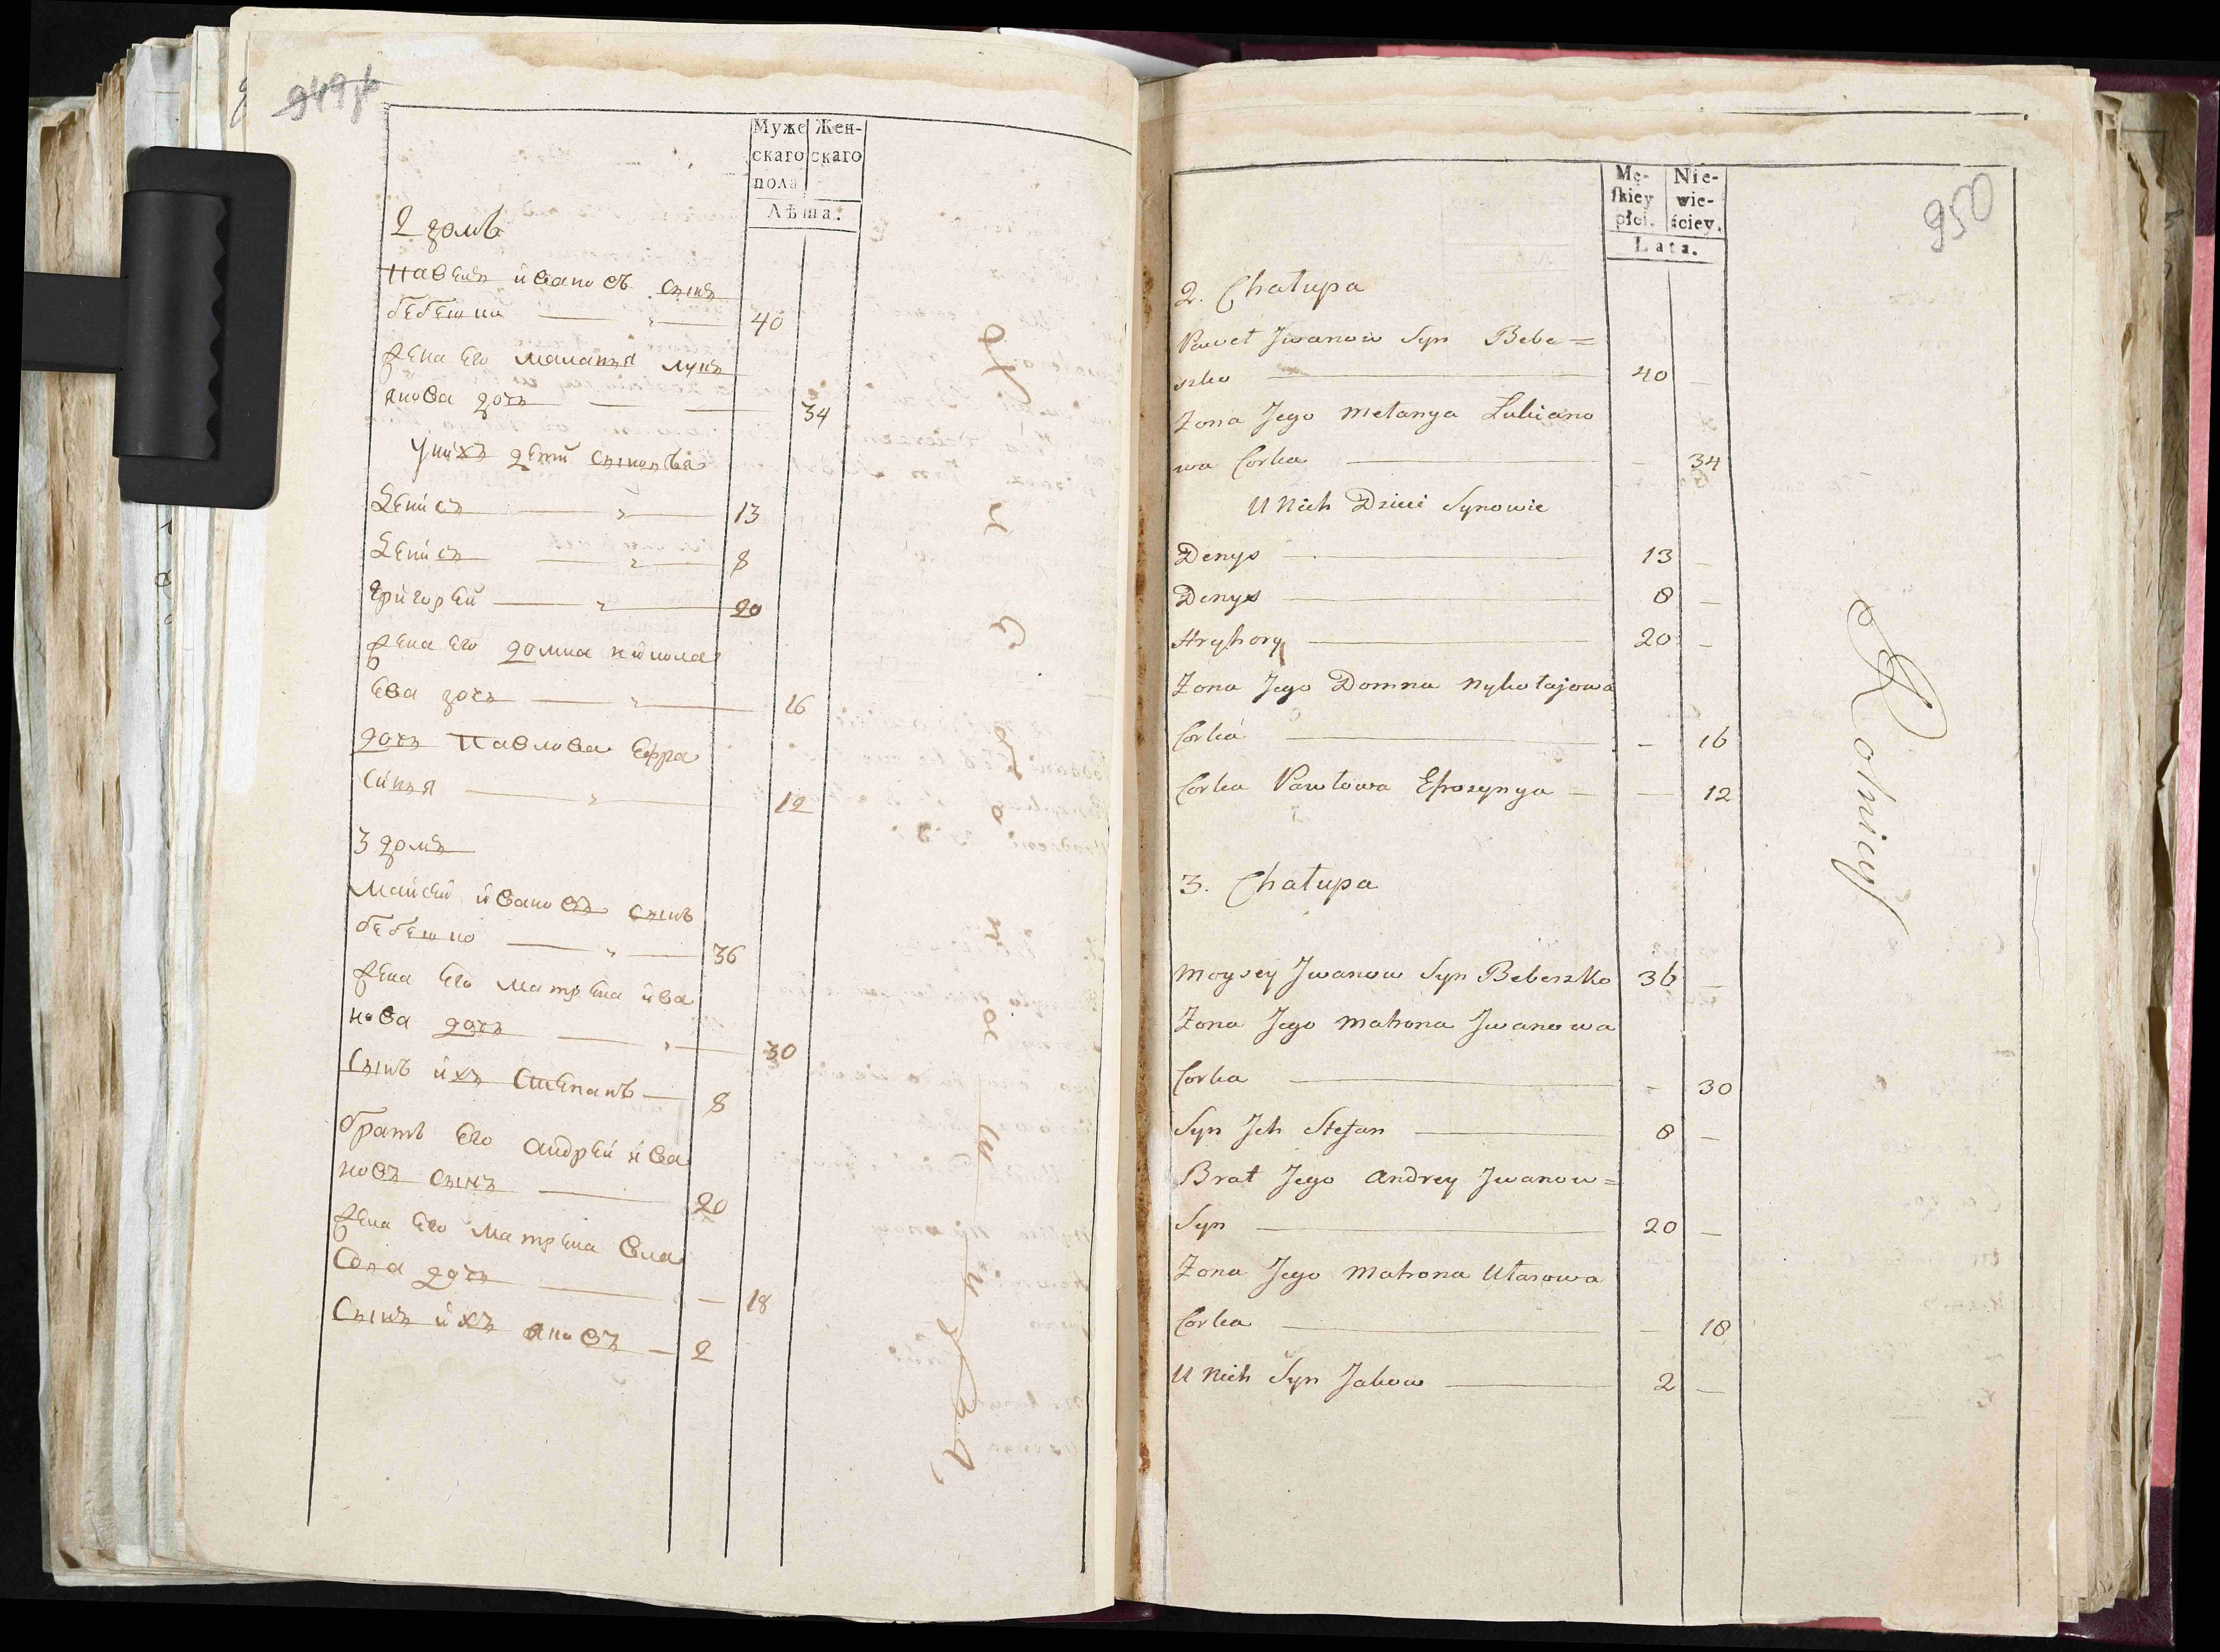 949
Муже Жен-
скаго скаго
пола
Лѣта.
2 домъ
Павелъ ивановъ сынъ
бебешко 40
жена его маланья лукъ
янова дочь 34
у нихъ дети сыновья
Денисъ 13
Денисъ 8
Григорей 20
жена его домна никола
ева дочь 16
дочь Павлова Ефра
синья 12
3 домъ
Майсей ивановъ сынъ
бебешко 36
жена его матрена ива
нова дочь 30
сынъ ихъ степанъ 8
братъ его андрей ива
новъ сынъ 20
жена его матрена вла
сова дочь 18
сынъ ихъ яковъ 2
950
Mę- Nie-
ſkiey wie-
płci. ściey.
Lata.
2. Chałupa
Paweł Jwanow Syn Bebe=
szko 40 –
Zona Jego Melanya Lukiano
wa Corka – 34
U Nich Dzieci Synowie
Denys 13 –
Denys 8 –
Hryhory 20 –
Zona Jego Domna Nykołajowa
Corka – 16
Corka Pawłowa Efrosynya – – 12
3. Chałupa
Moysey Jwanow Syn Bebeszko 36 –
Zona Jego Matrona Jwanowa
Corka – 30
Syn Jch Stefan 8 –
Brat Jego Andrey Jwanow=
Syn 20 –
Zona Jego Matrona Ułasowa
Corka – 18
U Nich Syn Jakow 2 –
Rolnicy